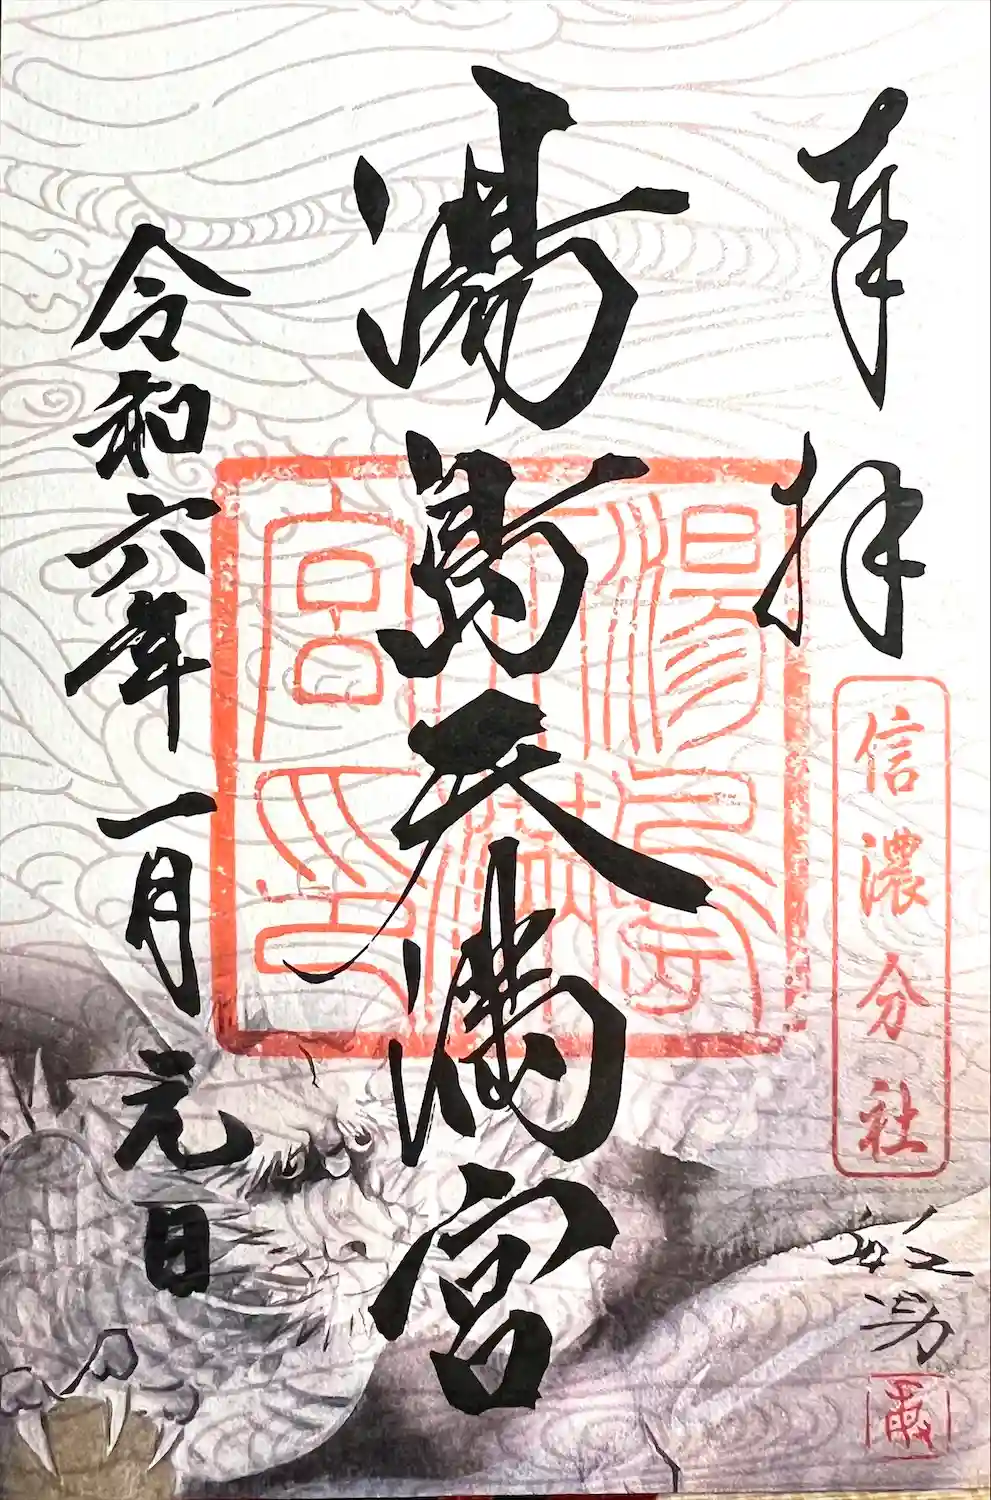 奉拝
信濃分社
湯島天満宮
湯島
天満
宮印
令和六年一月元日